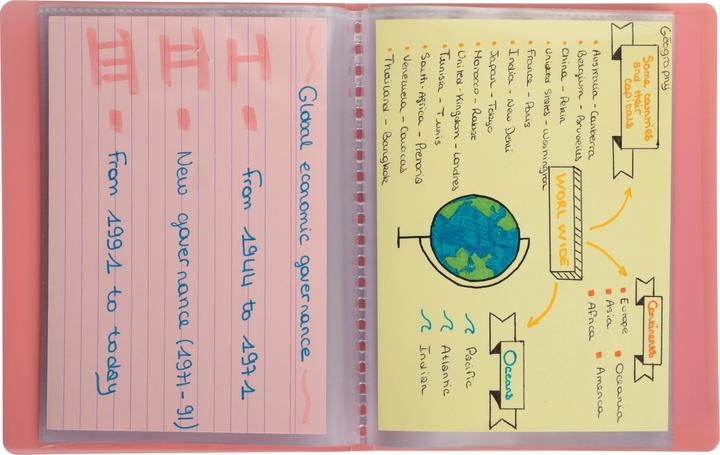 Geography
Some countries
and their
capitals
• Australia - Canberra
• Belgium - Bruxelles
• China - Pekin
• United States - Washington
• France - Paris
• India - New Delhi
• Japan - Tokyo
• Morocco - Rabat
• United-Kingdom - Londres
• Tunisia - Tunis
• South-Africa - Pretoria
• Venezuela - Caracas
• Thailand - Bangkok
WORL WIDE
Continents
Europe
Oceania
Asia
America
Africa
Oceans
Pacific
Atlantic
Indian
Global economic governance
I - from 1944 to 1971
II - New governance (1971-91)
III - From 1991 to today